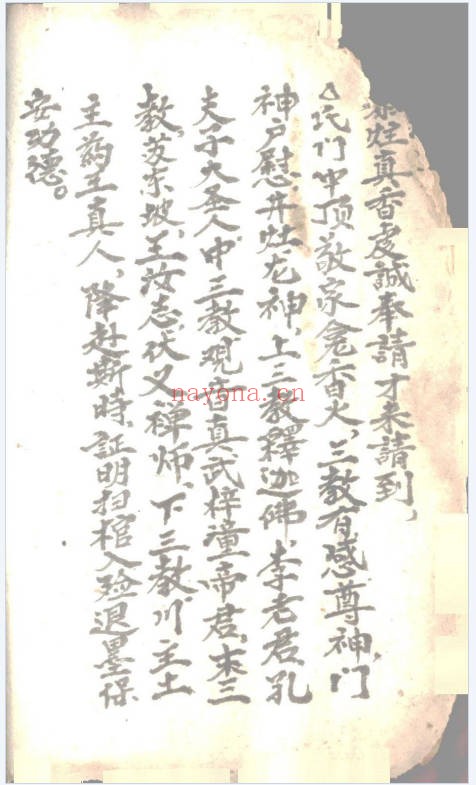 炷真香虔誠奉請才来請到，
△氏门中頂敬家龛香火，三教有感尊神，门
神户慰，井灶龙神，上三教釋迦佛，李老君，孔
夫子大圣人，中三教，观音，真武，梓潼帝君，末三
教，苏东坡，王汝志，伏义禅师，下三教，川主，土
主，药王真人，降赴斯時，証明扫棺入殓退墨保
安功德。
nayona.cn